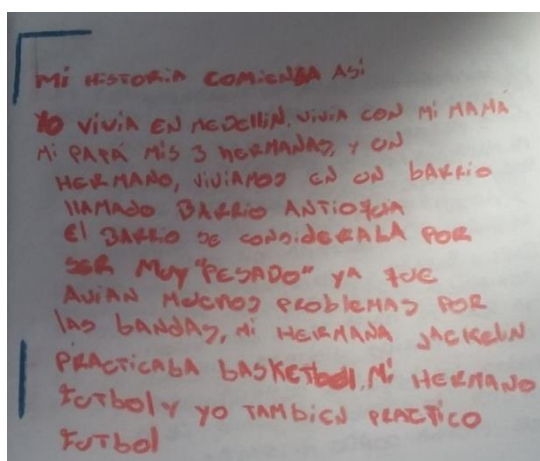 Mi HiSTORiA COMiENSA ASi
YO ViViA EN MEDEllIN. ViViA CON Mi MAMÁ
Mi PAPÁ MiS 3 hERMANAS, Y UN
HERMANO, ViViAMOS EN UN bARRiO
llAMADO BARRiO ANTiOqUiA
El BARRiO SE CONSiDERALA POR
SER MUY "PESADO" YA qUE
AViAN MUCHOS PROblEMAS POR
lAS bANDAS, Mi HERMANA JACKELiN
PRACTiCAbA bASKETbOl. Mi HERMANO
FUTbOl Y YO TAMbiEN PRACTiCO
FUTbOl